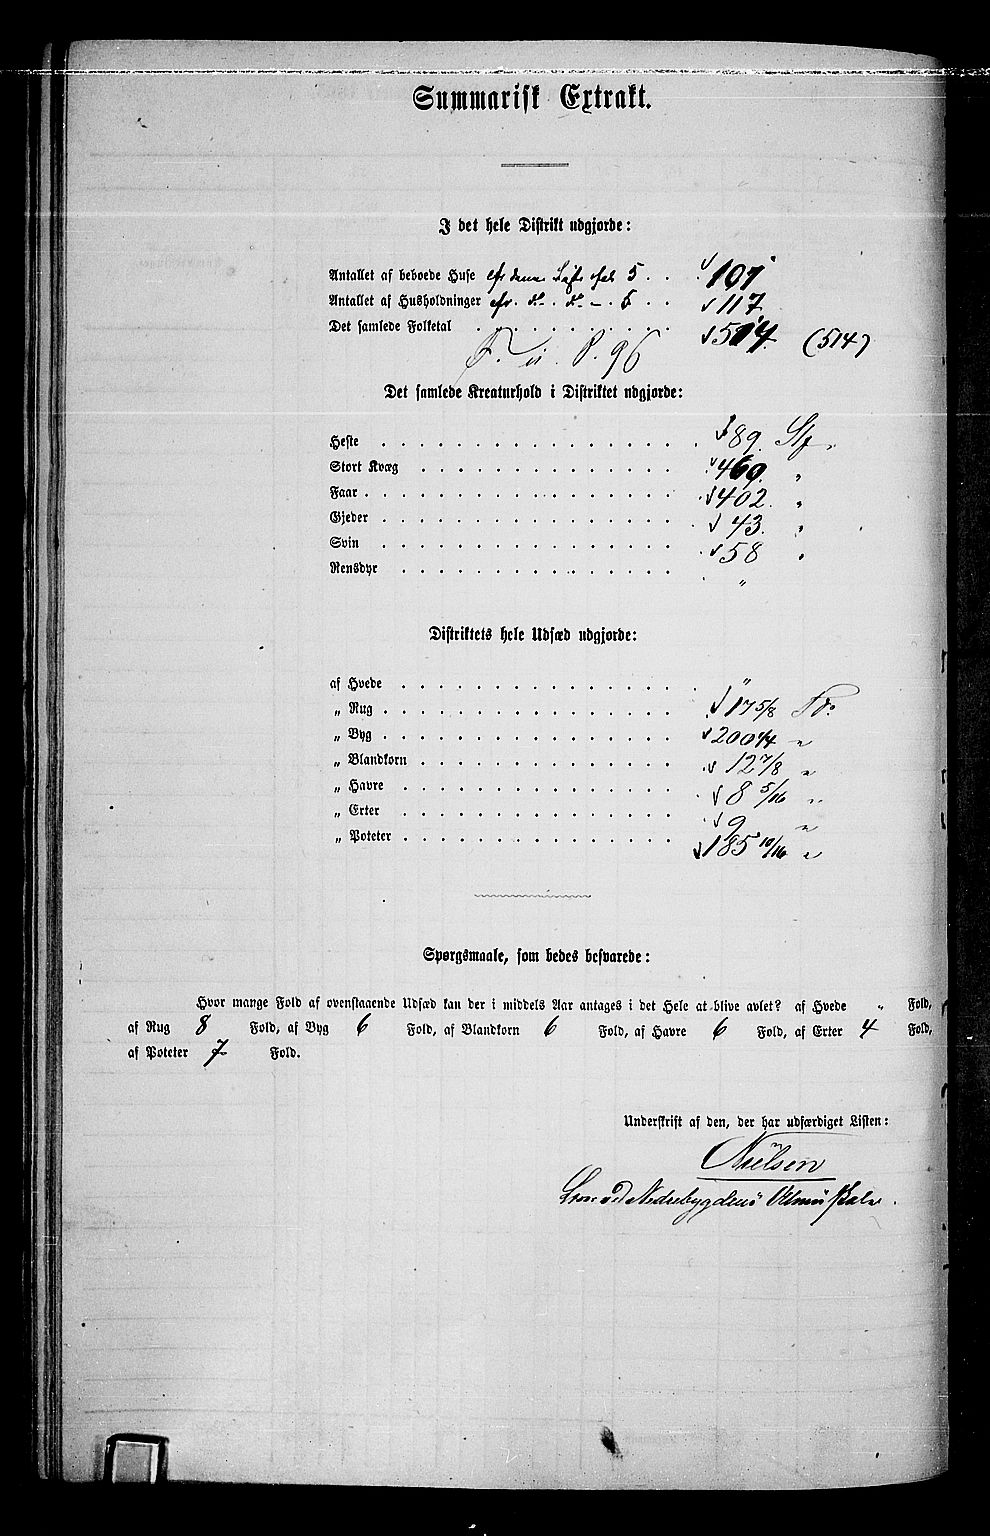 Summarisk Extrakt.
I det hele Distrikt udgjorde:
Antallet af beboede Huse cfr denne Liste 5 . . 101
Antallet af Husholdninger cfr. do. do. - 5 . . 117
Det samlede Folketal . . . . . . . . . . . 514. (514)
F. P. 96
Det samlede Kreaturhold i Distriktet udgjorde:
Heste . . . . . . . . . . . . . . . . . 89. Stk.
Stort Kvæg . . . . . . . . . . . . . . 469. "
Faar . . . . . . . . . . . . . . . . . 402. "
Gjeder . . . . . . . . . . . . . . . . 43. "
Svin . . . . . . . . . . . . . . . . . 58 "
Rensdyr . . . . . . . . . . . . . . . "
Distriktets hele Udsæd udgjorde:
af Hvede . . . . . . . . . . . . . . . "
„ Rug . . . . . . . . . . . . . . . . 17 5/8 Tdr
„ Byg . . . . . . . . . . . . . . . . 200 1/4 "
„ Blandkorn . . . . . . . . . . . . . 12 7/8 "
„ Havre . . . . . . . . . . . . . . . 8 5/16 "
„ Erter . . . . . . . . . . . . . . . 9 "
„ Poteter . . . . . . . . . . . . . . 185 10/16 "
Spørgsmaale, som bedes besvarede:
Hvor mange Fold af ovenstaaende Udsæd kan der i middels Aar antages i det Hele at blive avlet? af Hvede " Fold,
af Rug 8 Fold, af Byg 6 Fold, af Blandkorn 6 Fold, af Havre 6 Fold, af Erter 4 Fold,
af Poteter 7 Fold.
Underskrift af den, der har udfærdiget Listen:
Nielsen
ved Nedrebygdens